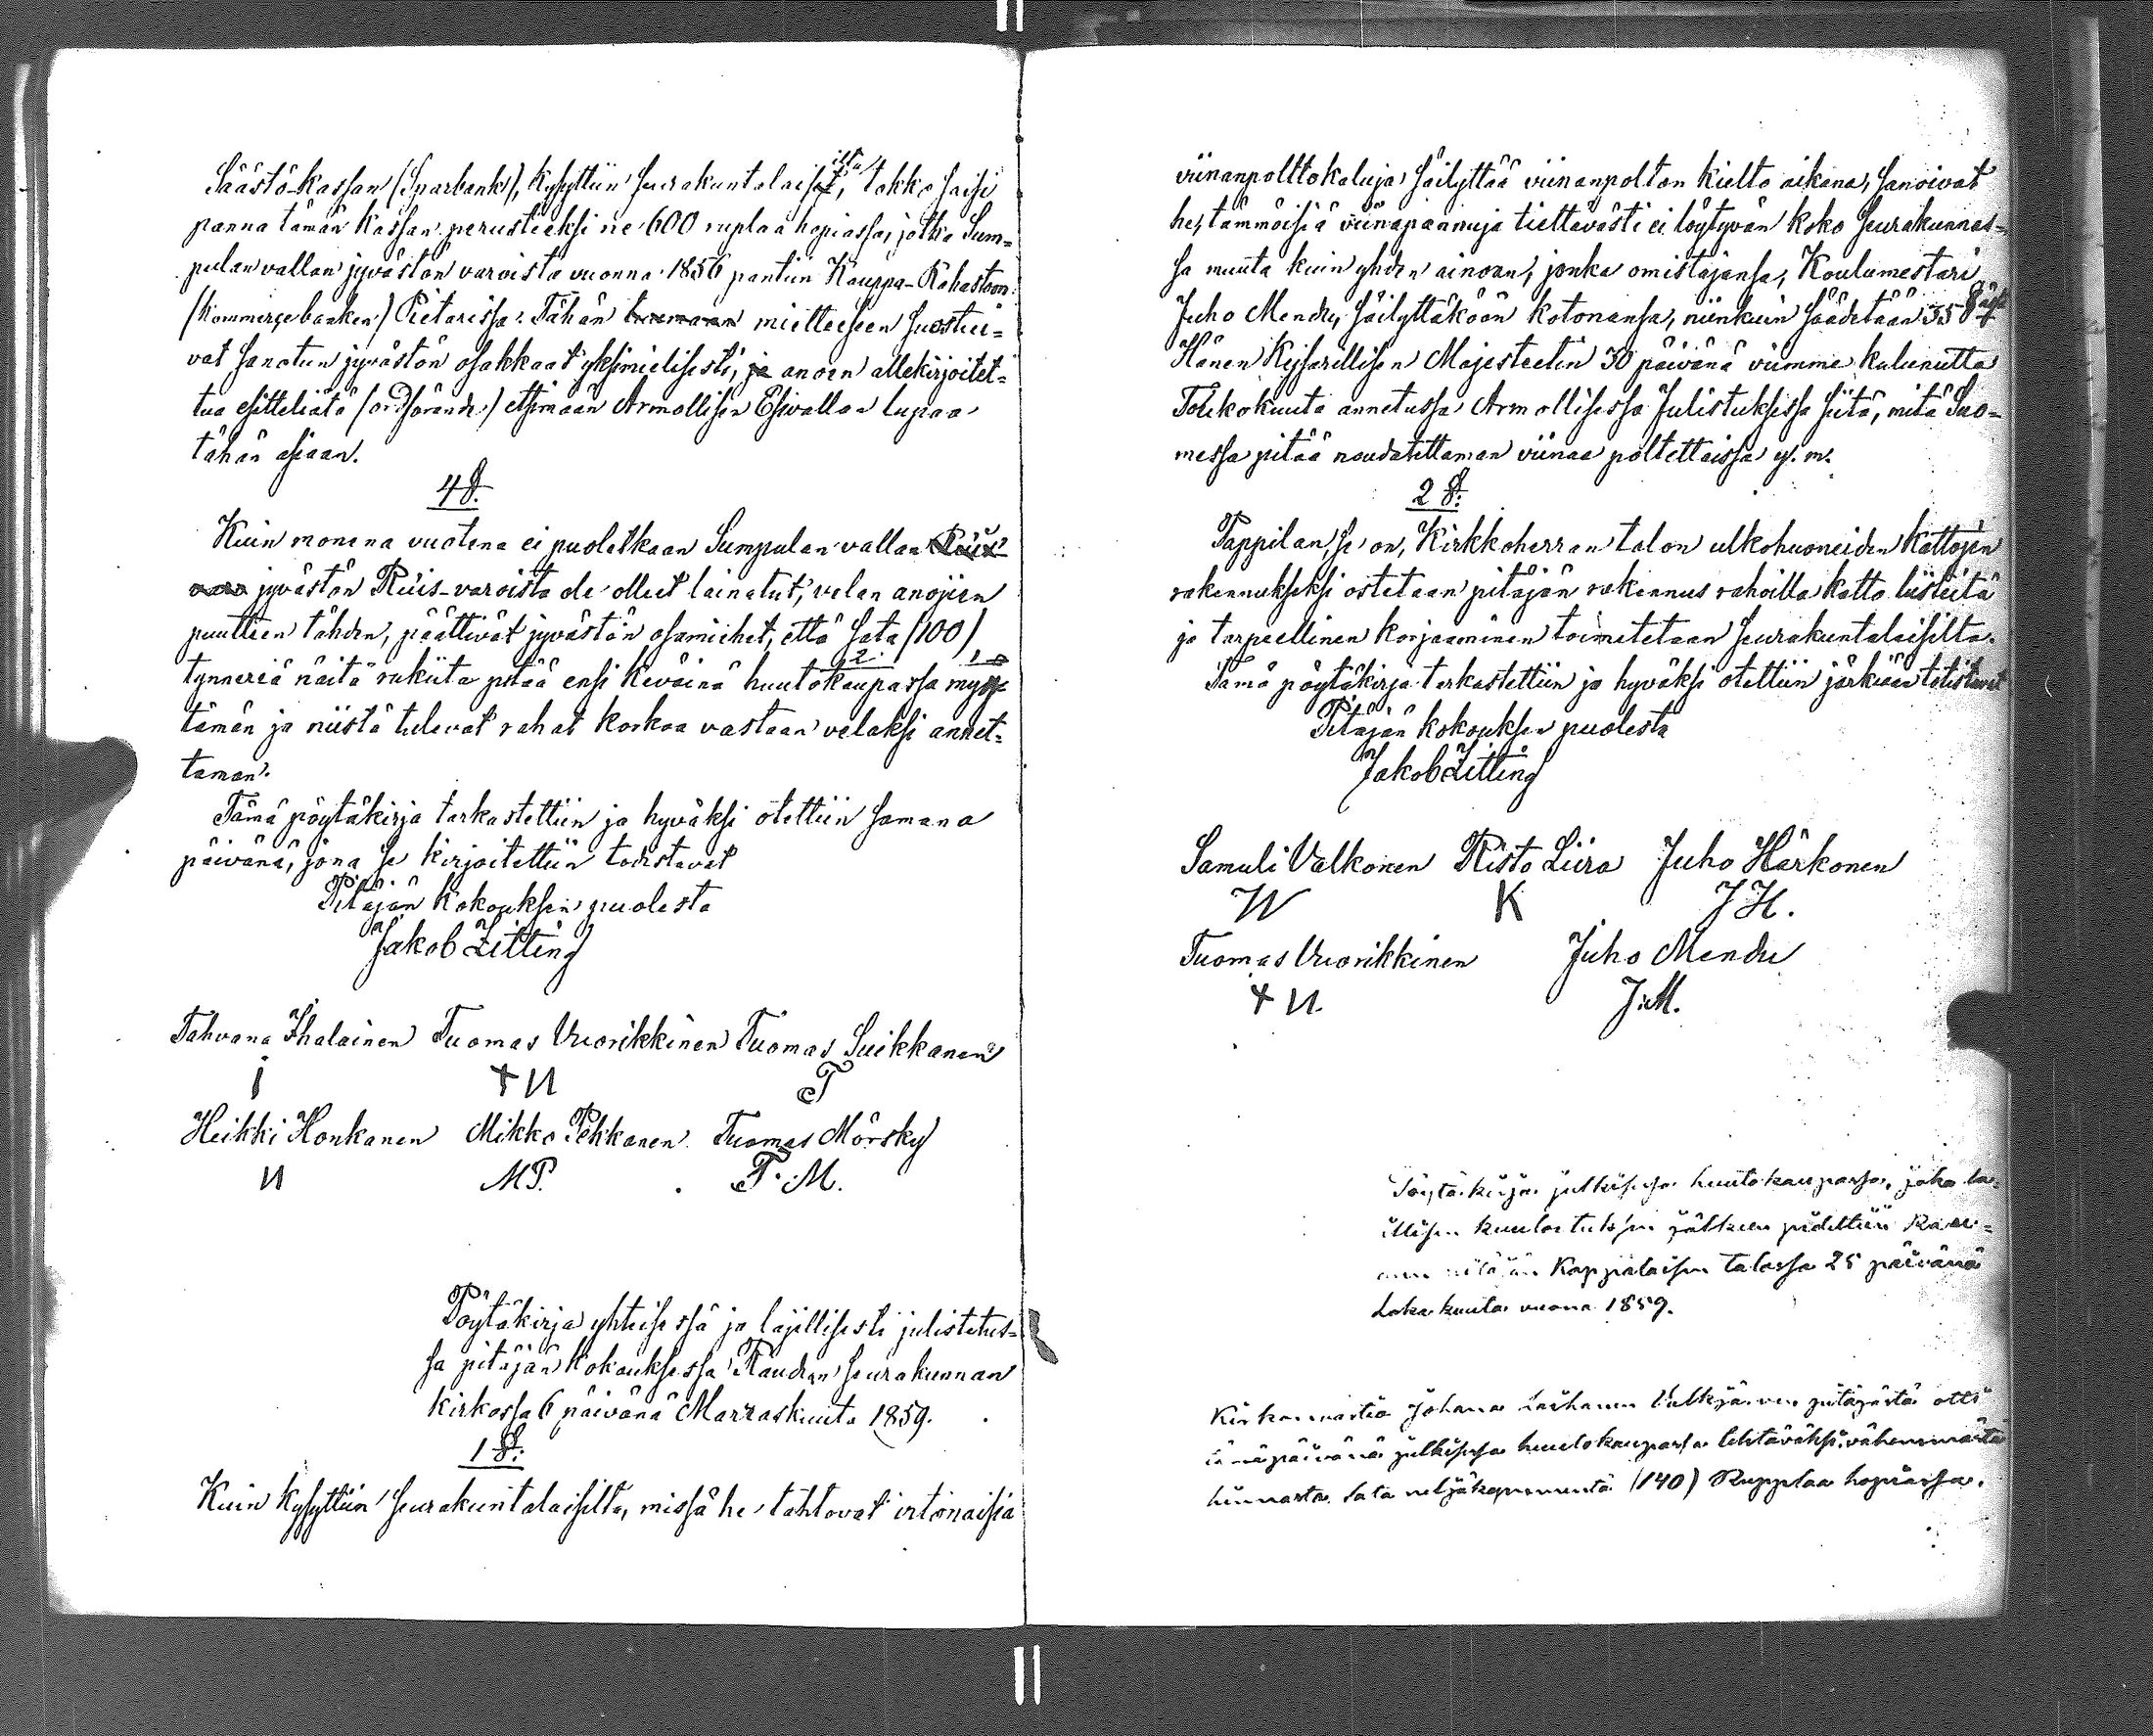 Säästö-kassan (Sparbank), kysyttiin seurakuntalaisilta, tokko saisi
panna tämän kassan perusteeksi ne 600 ruplaa hopiassa, jotka Sum=
pulan vallan jyvästön varoista vuonna 1856 pantiin Kauppa-Rahastoon
(Kommerçe banken) Pietarissa. Tähän tuumaan mielteeseen suostui=
vat sanotun jyvästön osakkaat yksimielisesti, ja anoen allekirjoitet=
tua esitteliätä (ordförande) etsimään Armollisen Esivallan lupaa
tähän asiaan.
4 §.
Kuin monena vuotena ei puoletkaan Sumpulan vallan
jyvästön Rúis-varoista ole olleet lainatut, velan anojien
puutteen tähden, päättivät jyvästön osamiehet, että sata (100)
tynneriä näitä rukiita pitää ensi keväinä huutokaupassa myy
tämän ja niistä tulevat rahat korkoa vastaan velaksi annet=
taman.
Tämä pöytäkirja tarkastettiin ja hyväksi otettiin samana
päivänä, jona se kirjoitettiin todistavat
Pitäjän kokouksen puolesta
Jakob Zitting
Tahvana Ihalainen Tuomas Vuorikkinen Tuomas Suikkanen
I + U T
Heikki Honkanen Mikko Pekkanen Tuomas Mörsky
H MP. T. M.
Pöytäkirja yhteisessä ja lajillisesti julistetus=
sa pitäjän kokouksessa Raudun seurakunnan
kirkossa 6 päivänä Marraskuuta 1859.
1 §.
Kuin kysyttiin seurakuntalaisilta, missä he tahtovat irtonaisia
viinanpolttokaluja säilyttää viinanpolton kielto aikana, sanoivat
he, tämmöisiä viinapannuja tiettävästi ei löytyvän koko seurakunnas=
sa muuta kuin yhden ainoan, jonka omistajansa, Koulumestari
Juho Mendu, säilyttäköön kotonansa, niinkuin säädetään 35 §
Hänen Keisarillisen Majesteetin 30 päivänä viimme kulunutta
Toukokuuta annetussa Armollisessa Julistuksessa siitä, mitä Suo=
messa pitää noudatettaman viinaa poltettaissa y. m.
2 §.
Pappilan, se on, Kirkkoherran talon ulkohuoneiden kattojen
rakennukseksi ostetaan pitäjän rakennus rahoilla katto liisteitä
ja tarpeellinen korjaaminen toimitetaan seurakuntalaisilta.
Tämä pöytäkirja tarkastettiin ja hyväksi otettiin järkiään totistavat
Pitäjän kokouksen puolesta
Jakob Zitting
Samuli Valkonen Risto Liira Juho Härkonen
W K J H.
Tuomas Vuorikkinen Juho Mendu
+ U. J. M.
Pöytäkirja julkisessa huutokaupassa, joka la=
illisen kuulustuksen jälkeen pidettiin Rau=
Kappalaisen talossa 25 päivänä
Lokakuuta vuona 1859.
Kirkonmastia Johana Valkjärven pitäjästä otti
tänäpäivänä julkisessa huutokaupassa tehtäväksi, vähemmästä
hinnasta sata neljäkymmentä (140) Rupplaa hopiassa.